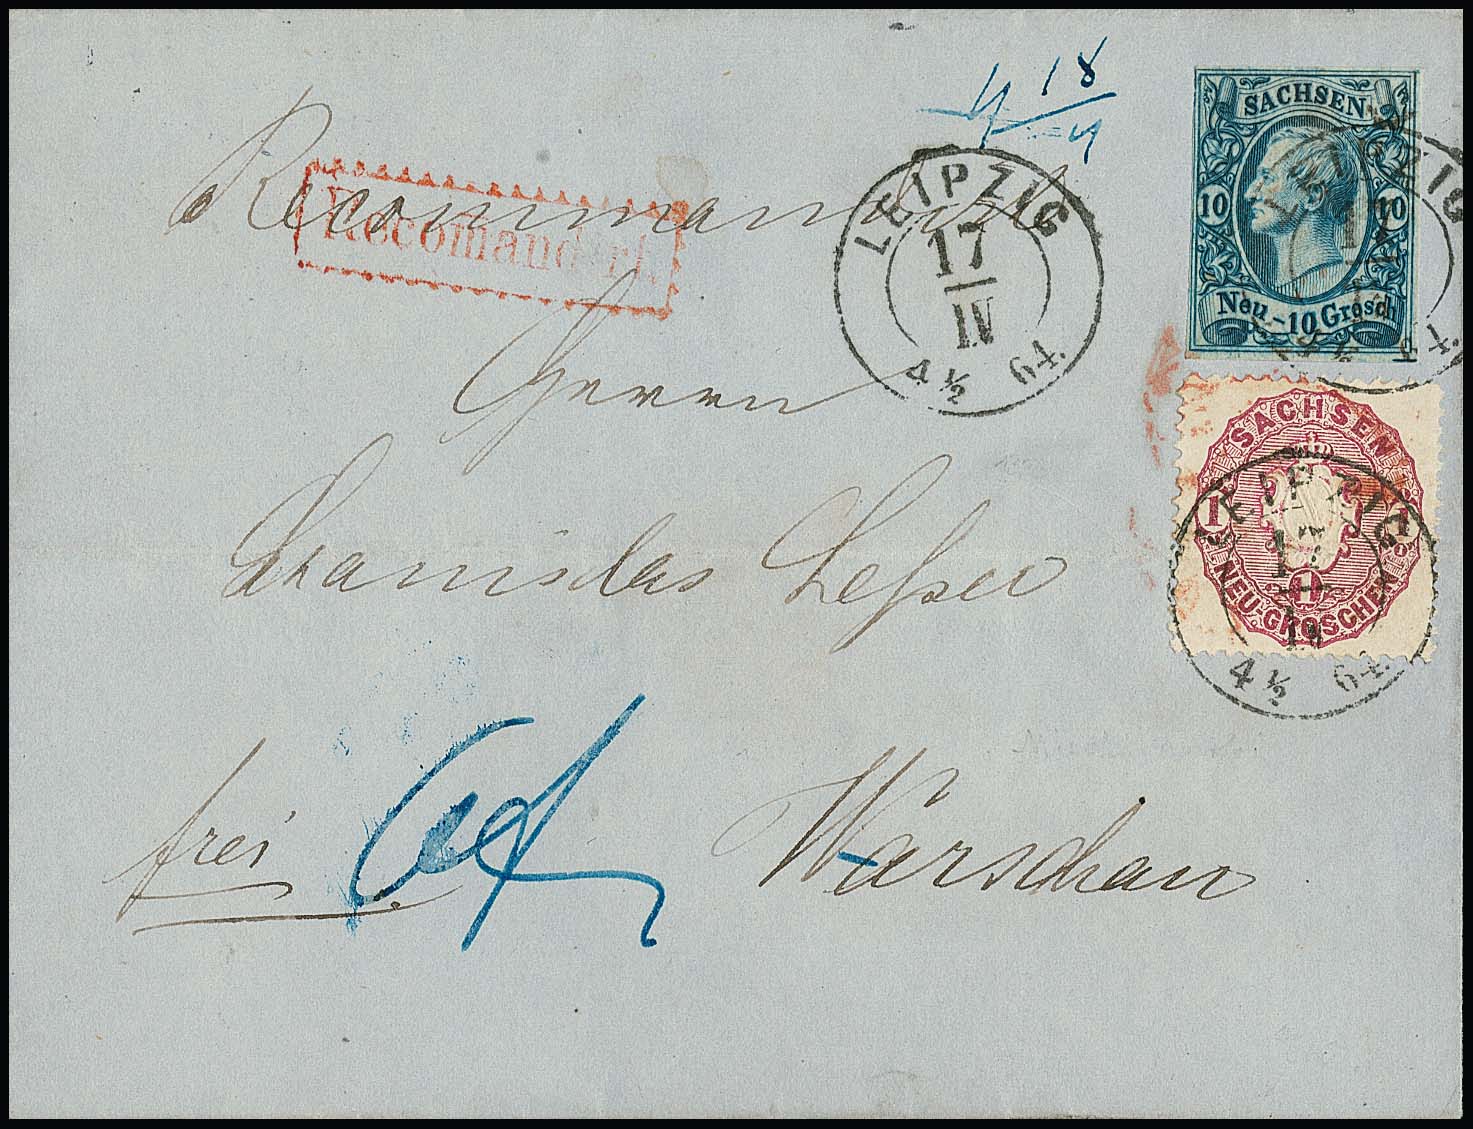 18
SACHSEN
10 10
Neu-10 Grosch
Recommandirt
Recomandirt.
LEIPZIG
17
IV
4½ 64.
LEIPZIG
17
4½ 64.
Herrn
SACHSEN
1 1
NEU-GROSCHEN
LEIPZIG
17
IV
4½ 64.
Stanislas Leßer
frei
Warschau